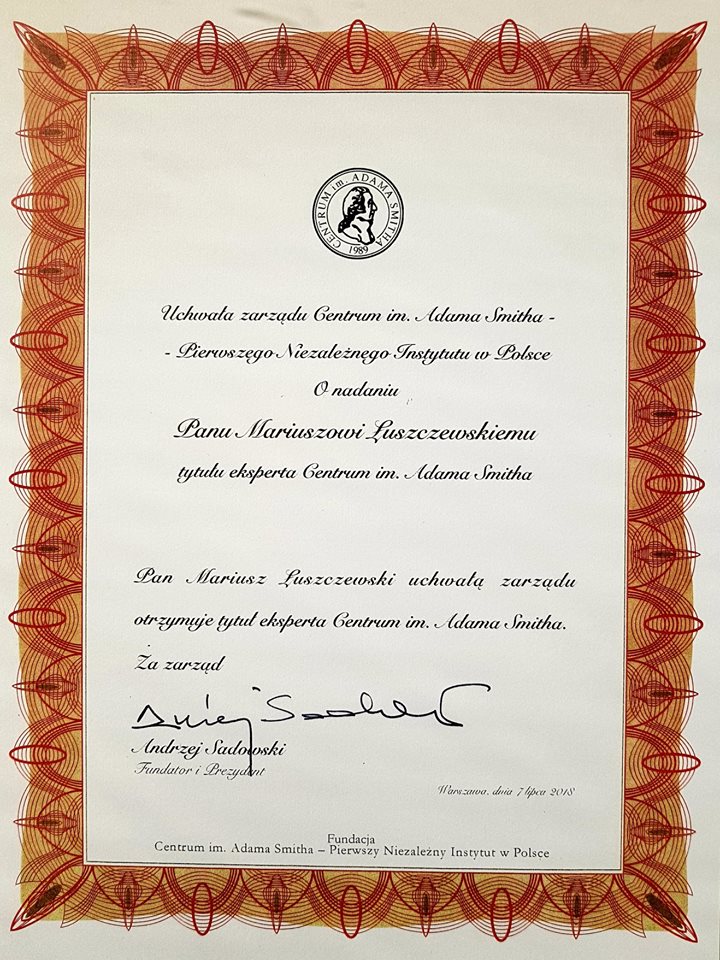 CENTRUM im. ADAMA SMITHA
1989
Uchwała zarządu Centrum im. Adama Smitha -
- Pierwszego Niezależnego Instytutu w Polsce
O nadaniu
Panu Mariuszowi Łuszczewskiemu
tytułu eksperta Centrum im. Adama Smitha
Pan Mariusz Łuszczewski uchwałą zarządu
otrzymuje tytuł eksperta Centrum im. Adama Smitha.
Za zarząd
Andrzej Sadowski
Fundator i Prezydent
Warszawa, dnia 7 lipca 2018
Fundacja
Centrum im. Adama Smitha – Pierwszy Niezależny Instytut w Polsce